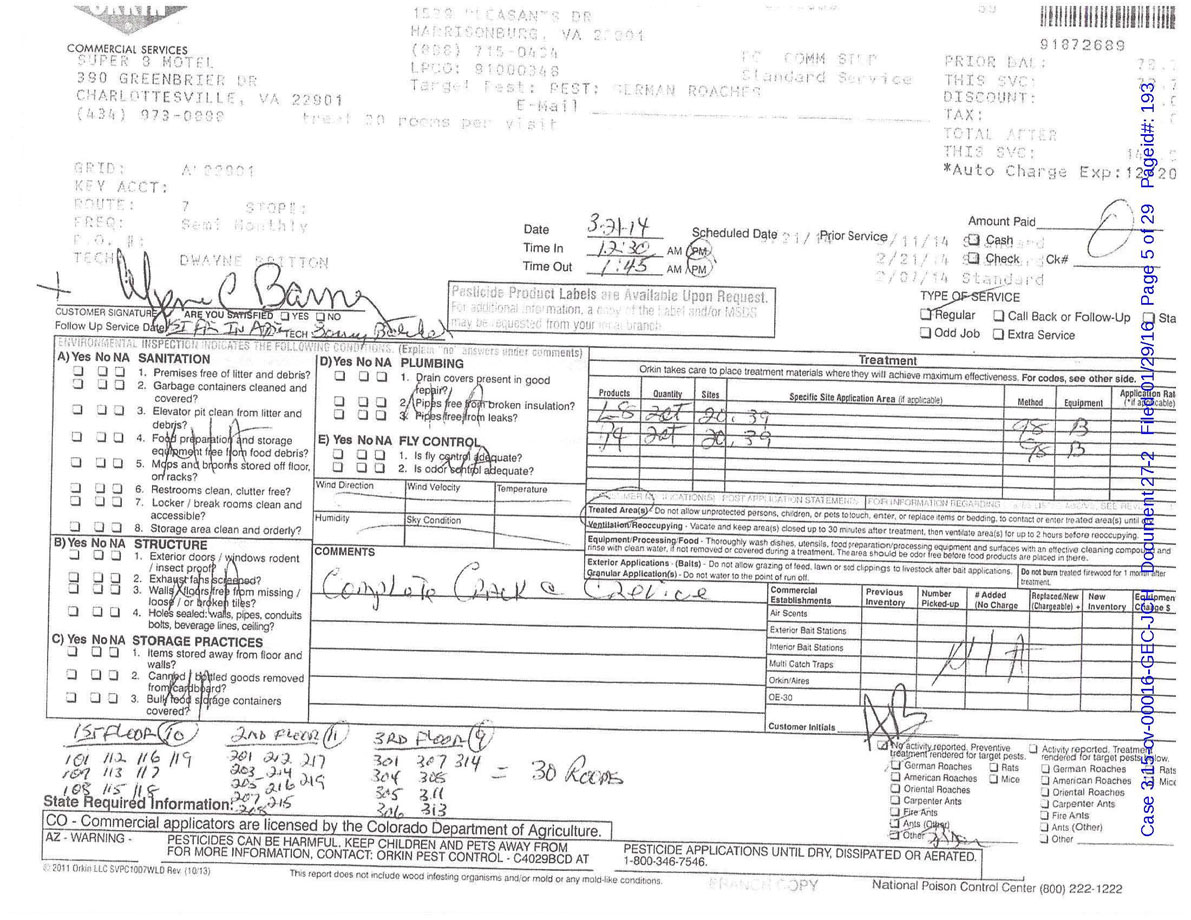 ORKIN
COMMERCIAL SERVICES
SUPER 8 MOTEL
390 GREENBRIER DR
CHARLOTTESVILLE, VA 22901
(434) 973-0888
treat 30 rooms per visit
PLEASANTS DR
HARRISONBURG, VA 22801
715-0434
LPCO:
Target Pest: PEST: GERMAN ROACHES
E-Mail
COMM
Standard Service
91872689
PRIOR BAL:
THIS SVC:
DISCOUNT:
TAX:
TOTAL AFTER
THIS SVC:
*Auto Charge Exp:
GRID: 22901
KEY ACCT:
ROUTE: 7
FREQ: Semi Monthly
P.O. #:
TECH: DWAYNE BRITTON
Date 3-21-14
Time In 12:30 AM PM
Time Out 1:45 AM PM
Scheduled Date Prior Service
2/21/14 Standard
2/07/14 Standard
Amount Paid 0
Cash
Check Ck#
TYPE OF SERVICE
Regular Call Back or Follow-Up
Odd Job Extra Service
CUSTOMER SIGNATURE ARE YOU SATISFIED YES NO
Follow Up Service Date TECH
Pesticide Product Labels are Available Upon Request.
For additional information, a copy of the Label and/or MSDS
may be requested from your local branch.
ENVIRONMENTAL INSPECTION INDICATES THE FOLLOWING CONDITIONS. (Explain "no" answers under comments)
A) Yes No NA SANITATION
1. Premises free of litter and debris?
2. Garbage containers cleaned and
covered?
3. Elevator pit clean from litter and
debris?
4. Food preparation and storage
equipment free from food debris?
5. Mops and brooms stored off floor,
on racks?
6. Restrooms clean, clutter free?
7. Locker / break rooms clean and
accessible?
8. Storage area clean and orderly?
B) Yes No NA STRUCTURE
1. Exterior doors / windows rodent
/ insect proof?
2. Exhaust fans screened?
3. Walls / floors free from missing /
loose / or broken tiles?
4. Holes sealed: walls, pipes, conduits
bolts, beverage lines, ceiling?
C) Yes No NA STORAGE PRACTICES
1. Items stored away from floor and
walls?
2. Canned / bottled goods removed
from cardboard?
3. Bulk food storage containers
covered?
D) Yes No NA PLUMBING
1. Drain covers present in good
repair?
2. Pipes free from broken insulation?
3. Pipes free from leaks?
E) Yes No NA FLY CONTROL
1. Is fly control adequate?
2. Is odor control adequate?
Wind Direction Wind Velocity Temperature
Humidity Sky Condition
COMMENTS
Complete Crack & Crevice
Treatment
Orkin takes care to place treatment materials where they will achieve maximum effectiveness. For codes, see other side.
Products Quantity Sites Specific Site Application Area (if applicable) Method Equipment
20, 39 98 B
20, 39 98 B
Treated Area(s) - Do not allow unprotected persons, children, or pets to touch, enter, or replace items or bedding, to contact or enter treated area(s) until
Ventilation/Reoccupying - Vacate and keep area(s) closed up to 30 minutes after treatment, then ventilate area(s) for up to 2 hours before reoccupying.
Equipment/Processing/Food - Thoroughly wash dishes, utensils, food preparation/processing equipment and surfaces with an effective cleaning compound and
rinse with clean water, if not removed or covered during a treatment. The area should be odor free before food products are placed in there.
Exterior Applications - (Baits) - Do not allow grazing of feed, lawn or sod clippings to livestock after bait applications.
Granular Application(s) - Do not water to the point of run off.
Do not burn treated firewood for 1 month after
treatment.
Commercial Establishments Previous Inventory Number Picked-up # Added (No Charge Replaced/New (Chargeable) + New Inventory
Air Scents
Exterior Bait Stations
Interior Bait Stations
Multi Catch Traps
Orkin/Aires
OE-30
N/A
Customer Initials AB
1ST FLOOR 10 2ND FLOOR 11 3RD FLOOR 9
101 112 116 119 201 212 217 301 307 314
107 113 117 203 214 304 308 = 30 ROOMS
108 115 118 205 216 219 305 311
207 215 306 313
208
No activity reported. Preventive
treatment rendered for target pests.
German Roaches Rats
American Roaches Mice
Oriental Roaches
Carpenter Ants
Fire Ants
Ants (Other)
Other
Activity reported. Treatment
rendered for target pests below.
German Roaches Rats
American Roaches Mice
Oriental Roaches
Carpenter Ants
Fire Ants
Ants (Other)
Other
State Required Information:
CO - Commercial applicators are licensed by the Colorado Department of Agriculture.
AZ - WARNING - PESTICIDES CAN BE HARMFUL. KEEP CHILDREN AND PETS AWAY FROM PESTICIDE APPLICATIONS UNTIL DRY, DISSIPATED OR AERATED.
FOR MORE INFORMATION, CONTACT: ORKIN PEST CONTROL - C4029BCD AT 1-800-346-7546.
© 2011 Orkin LLC SVPC1007WLD Rev. (10/13)
This report does not include wood infesting organisms and/or mold or any mold-like conditions.
BRANCH COPY
National Poison Control Center (800) 222-1222
Case 3:15-cv-00016-GEC-JCH Document 27-2 Filed 01/29/16 Page 5 of 29 Pageid#: 193